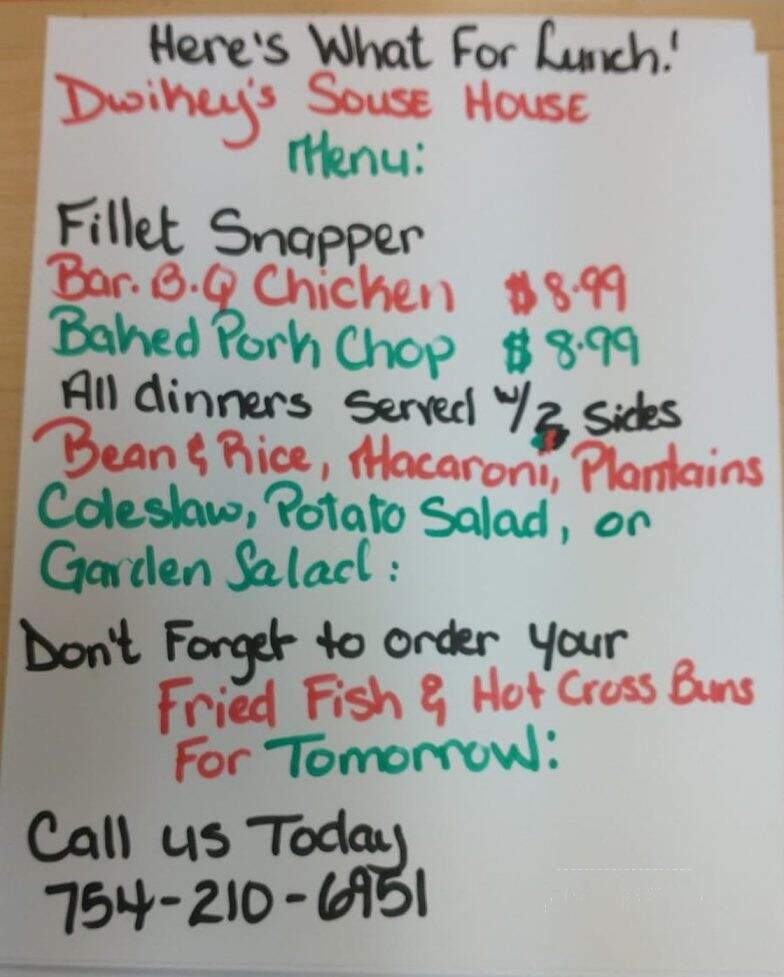 Here's What For Lunch!
Dwikey's Souse House
Menu:
Fillet Snapper
Bar.B.Q Chicken $8.99
Baked Pork Chop $8.99
All dinners Served w/2 Sides
Bean & Rice, Macaroni, Plantains
Coleslaw, Potato Salad, or
Garden Salad:
Don't Forget to order your
Fried Fish & Hot Cross Buns
For Tomorrow:
Call us Today
754-210-6951